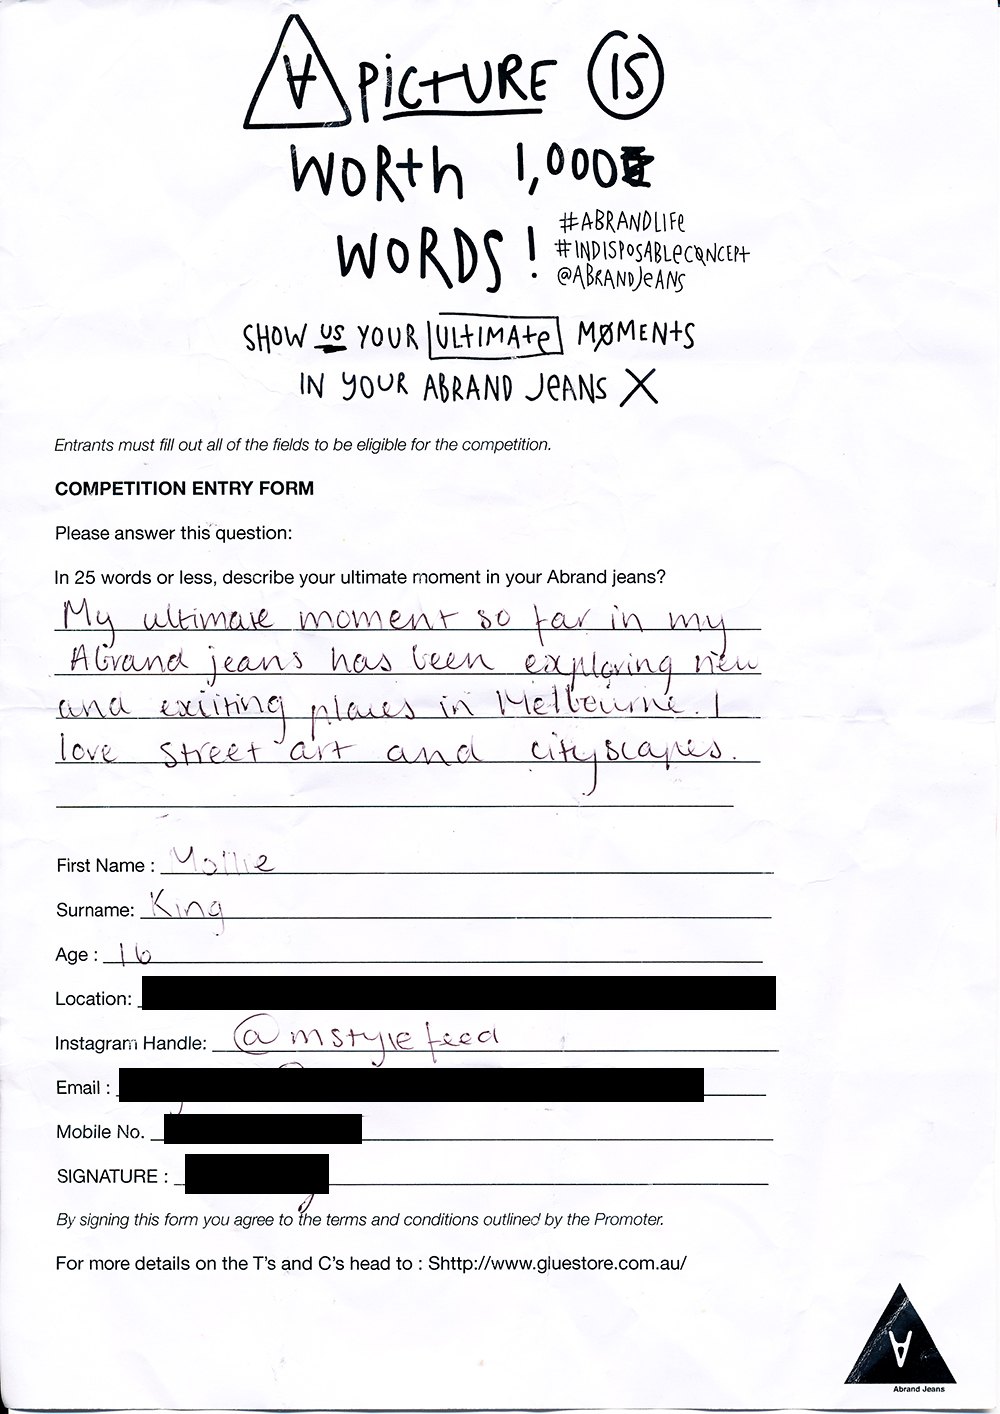 A PICTURE IS
WORTH 1,000
WORDS!
#ABRANDLIFE
#INDISPOSABLECONCEPT
@ABRANDJEANS
SHOW US YOUR ULTIMATE MOMENTS
IN YOUR ABRAND JEANS X
Entrants must fill out all of the fields to be eligible for the competition.
COMPETITION ENTRY FORM
Please answer this question:
In 25 words or less, describe your ultimate moment in your Abrand jeans?
My ultimate moment so far in my
Abrand jeans has been exploring new
and exiiting places in Melbourne. I
love street art and cityscapes.
First Name : Mollie
Surname: King
Age : 16
Location:
Instagram Handle: @mstylefeed
Email :
Mobile No.
SIGNATURE :
By signing this form you agree to the terms and conditions outlined by the Promoter.
For more details on the T's and C's head to : Shttp://www.gluestore.com.au/
A
Abrand Jeans